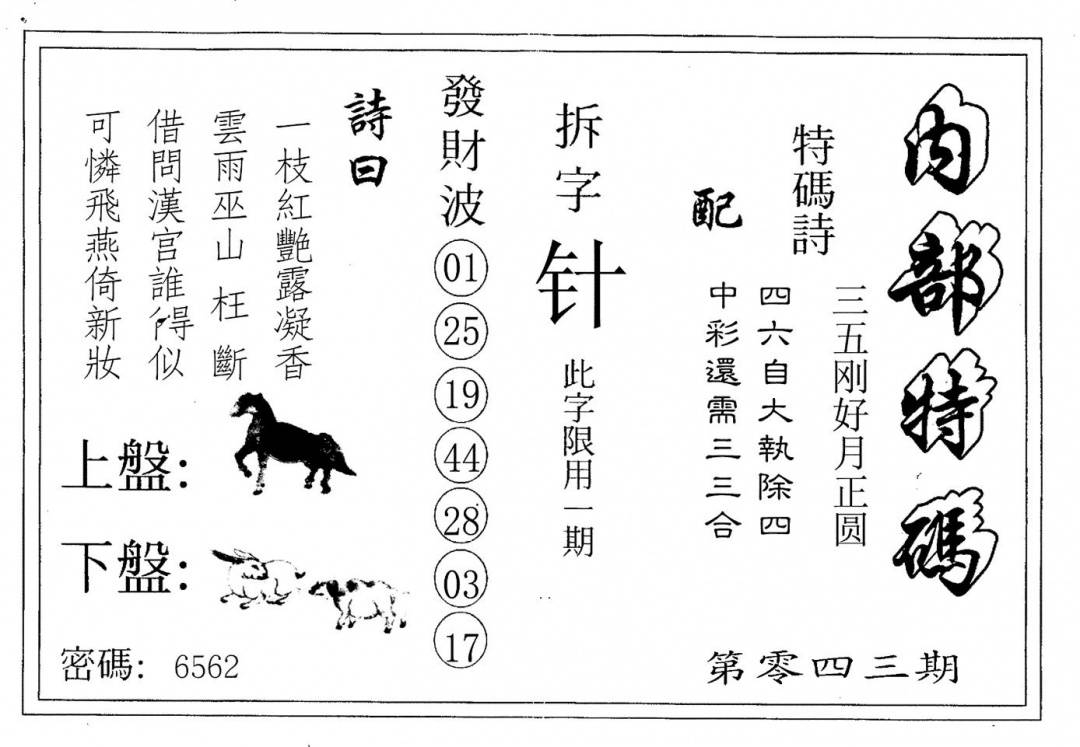 内部特碼
特碼詩
三五刚好月正圆
配
四六自大執除四
中彩還需三三合
第零四三期
拆字
针
此字限用一期
發財波
01
25
19
44
28
03
17
詩曰
一枝紅艷露凝香
雲雨巫山枉斷
借問漢宮誰得似
可憐飛燕倚新妝
上盤:
下盤:
密碼: 6562